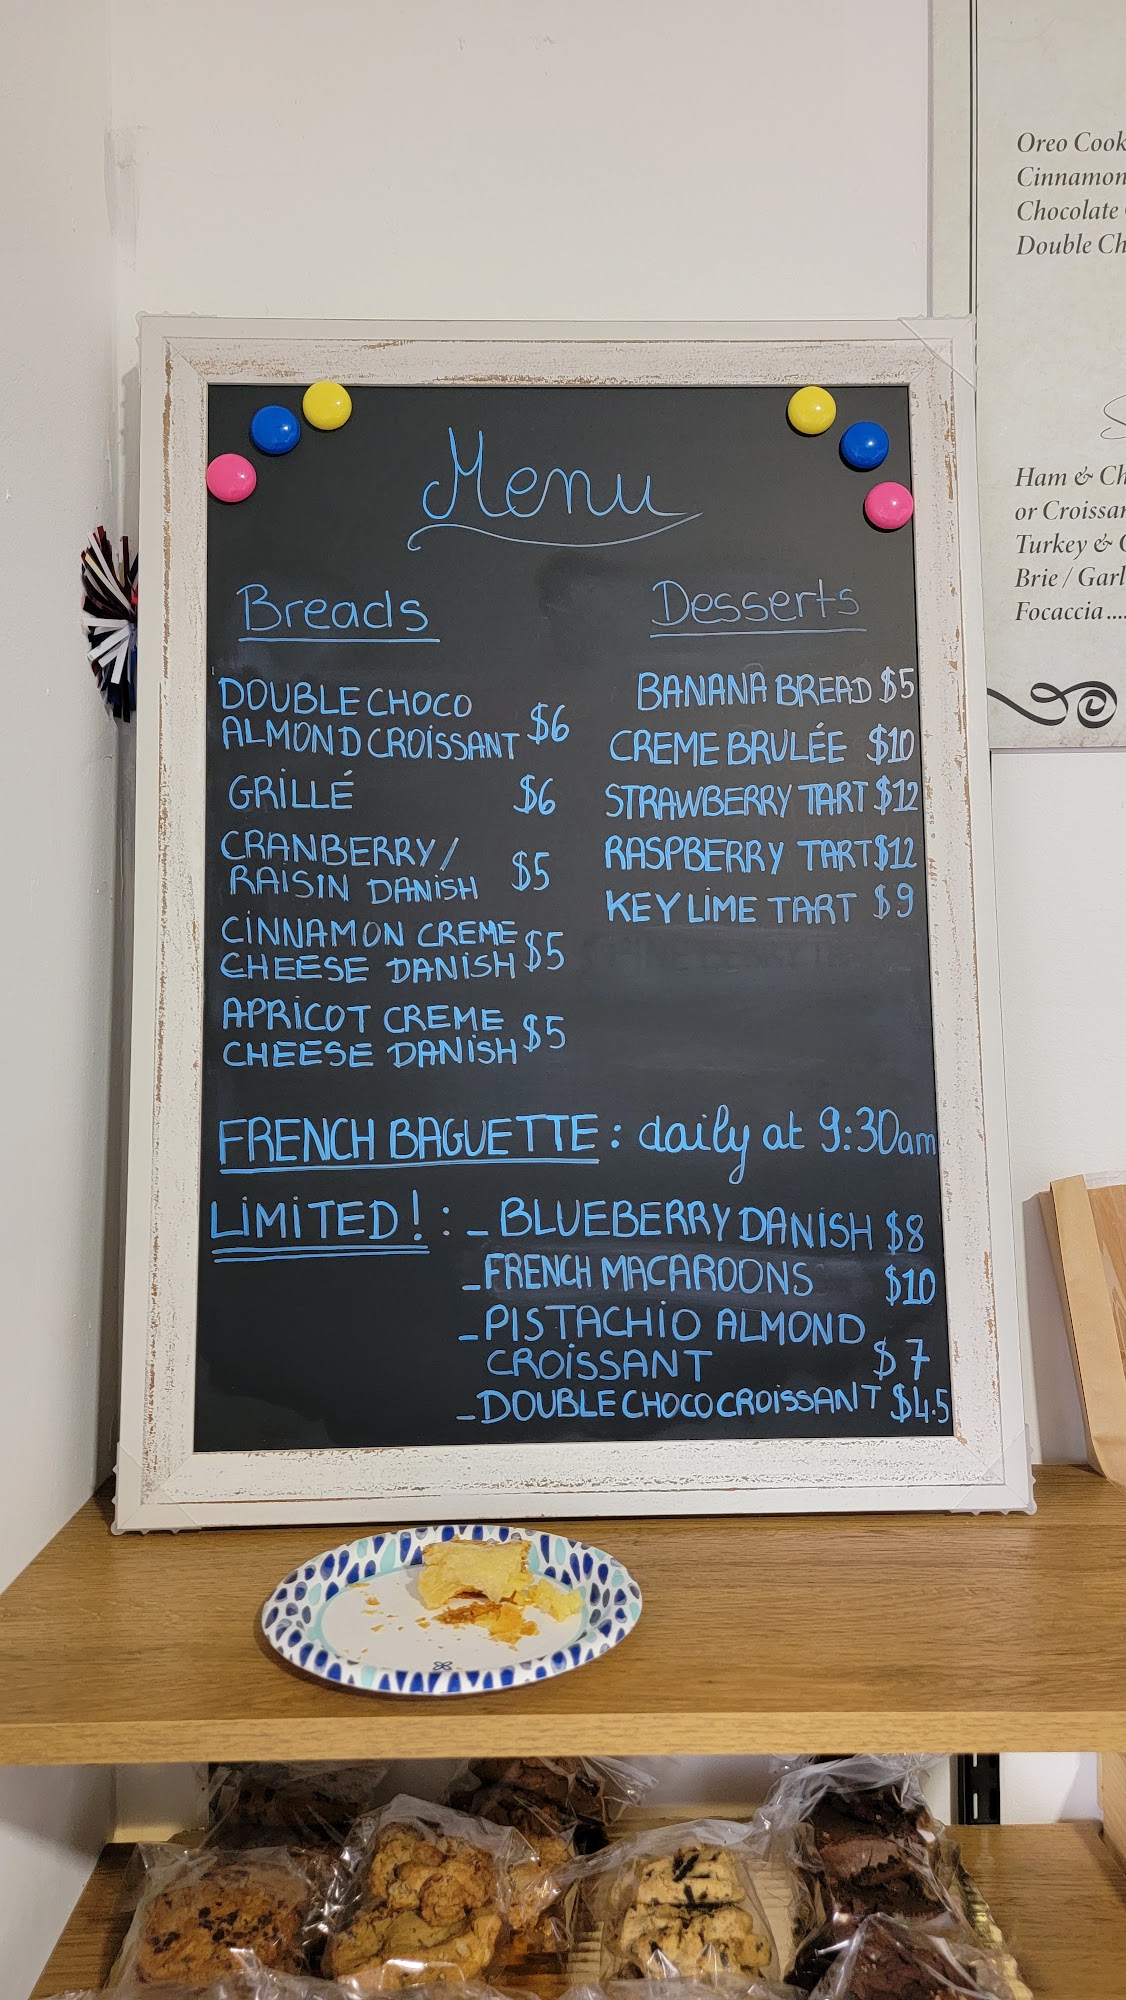 Menu
Breads
DOUBLE CHOCO
ALMOND CROISSANT $6
GRILLÉ $6
CRANBERRY/
RAISIN DANISH $5
CINNAMON CREME
CHEESE DANISH $5
APRICOT CREME
CHEESE DANISH $5
Desserts
BANANA BREAD $5
CREME BRULÉE $10
STRAWBERRY TART $12
RASPBERRY TART $12
KEY LIME TART $9
FRENCH BAGUETTE : daily at 9:30am
LIMITED! : - BLUEBERRY DANISH $8
- FRENCH MACAROONS $10
- PISTACHIO ALMOND
CROISSANT $7
- DOUBLE CHOCO CROISSANT $4.5
Oreo Cook
Cinnamon
Chocolate
Double Ch
Ham & Ch
or Croissan
Turkey &
Brie / Garl
Focaccia....